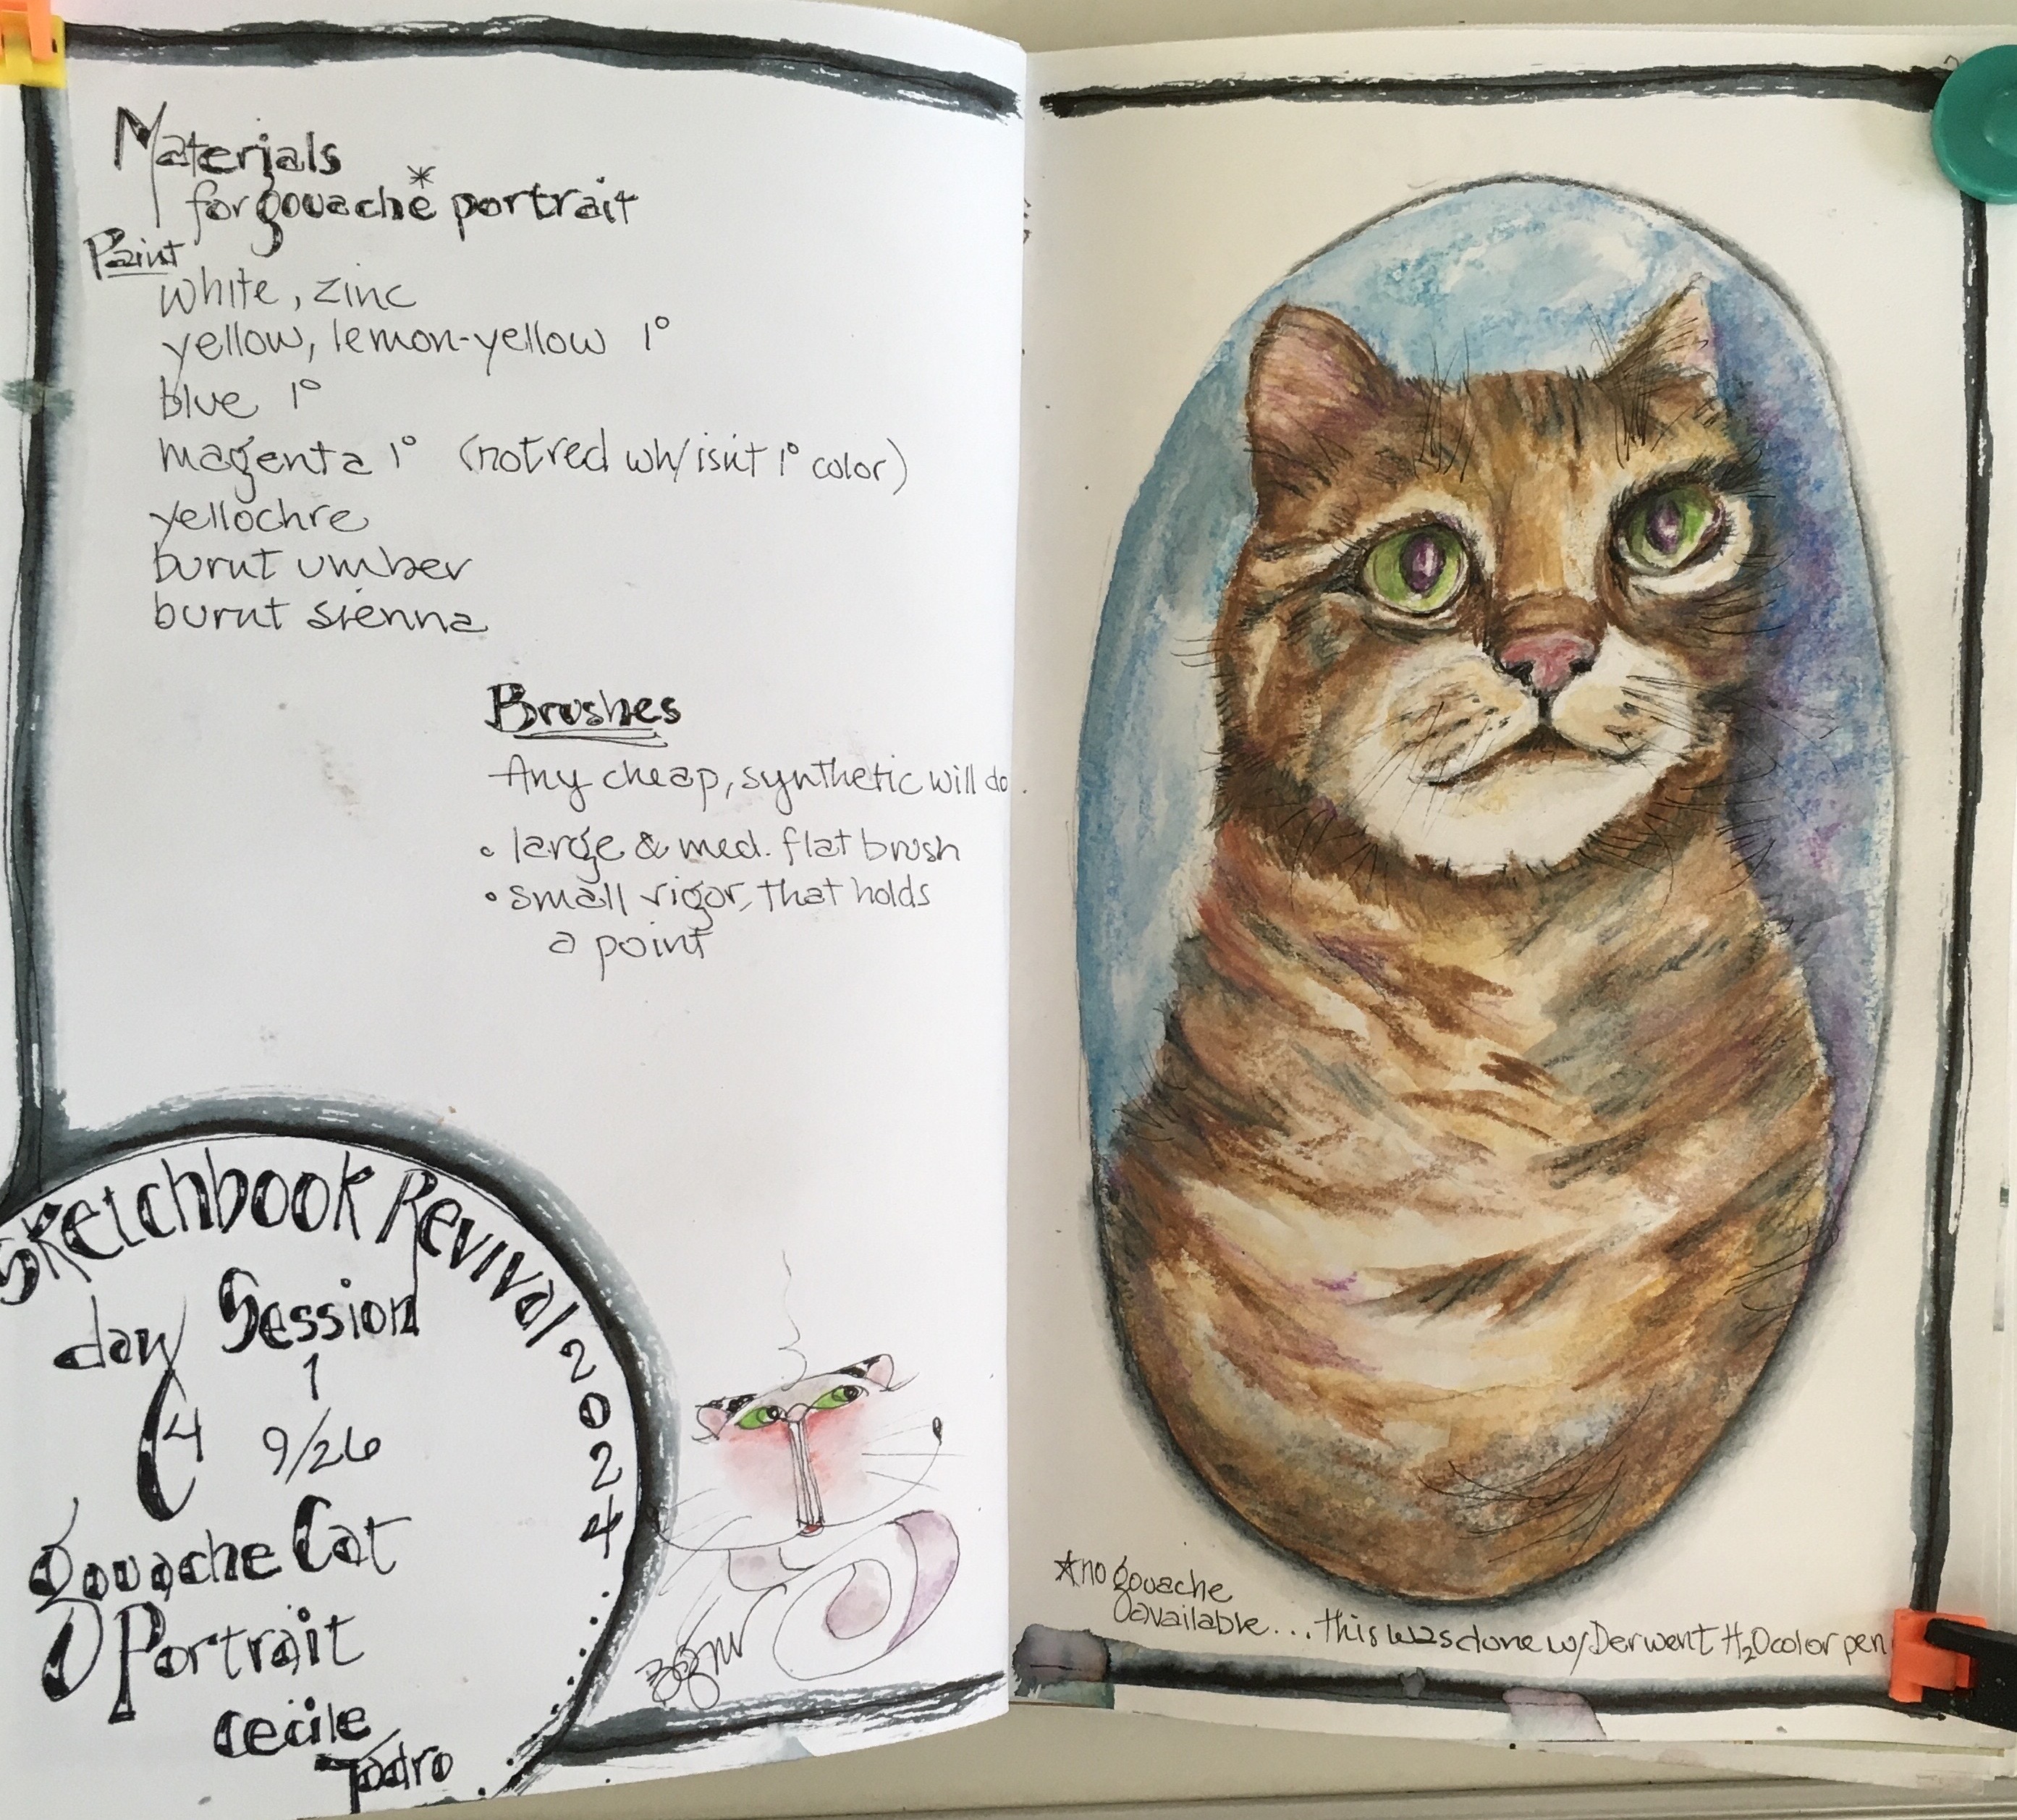 Materials
for gouache* portrait
Paint
white, zinc
yellow, lemon-yellow 1°
blue 1°
magenta 1° (not red wh/isn't 1° color)
yellochre
burnt umber
burnt sienna
Brushes
Any cheap, synthetic will do.
• large & med. flat brush
• small rigor, that holds
a point
Sketchbook Revival 2024
day Session
4 1
9/26
gouache Cat
Portrait
Cecile
*no gouache
available... this was done w/Derwent H₂O color pen